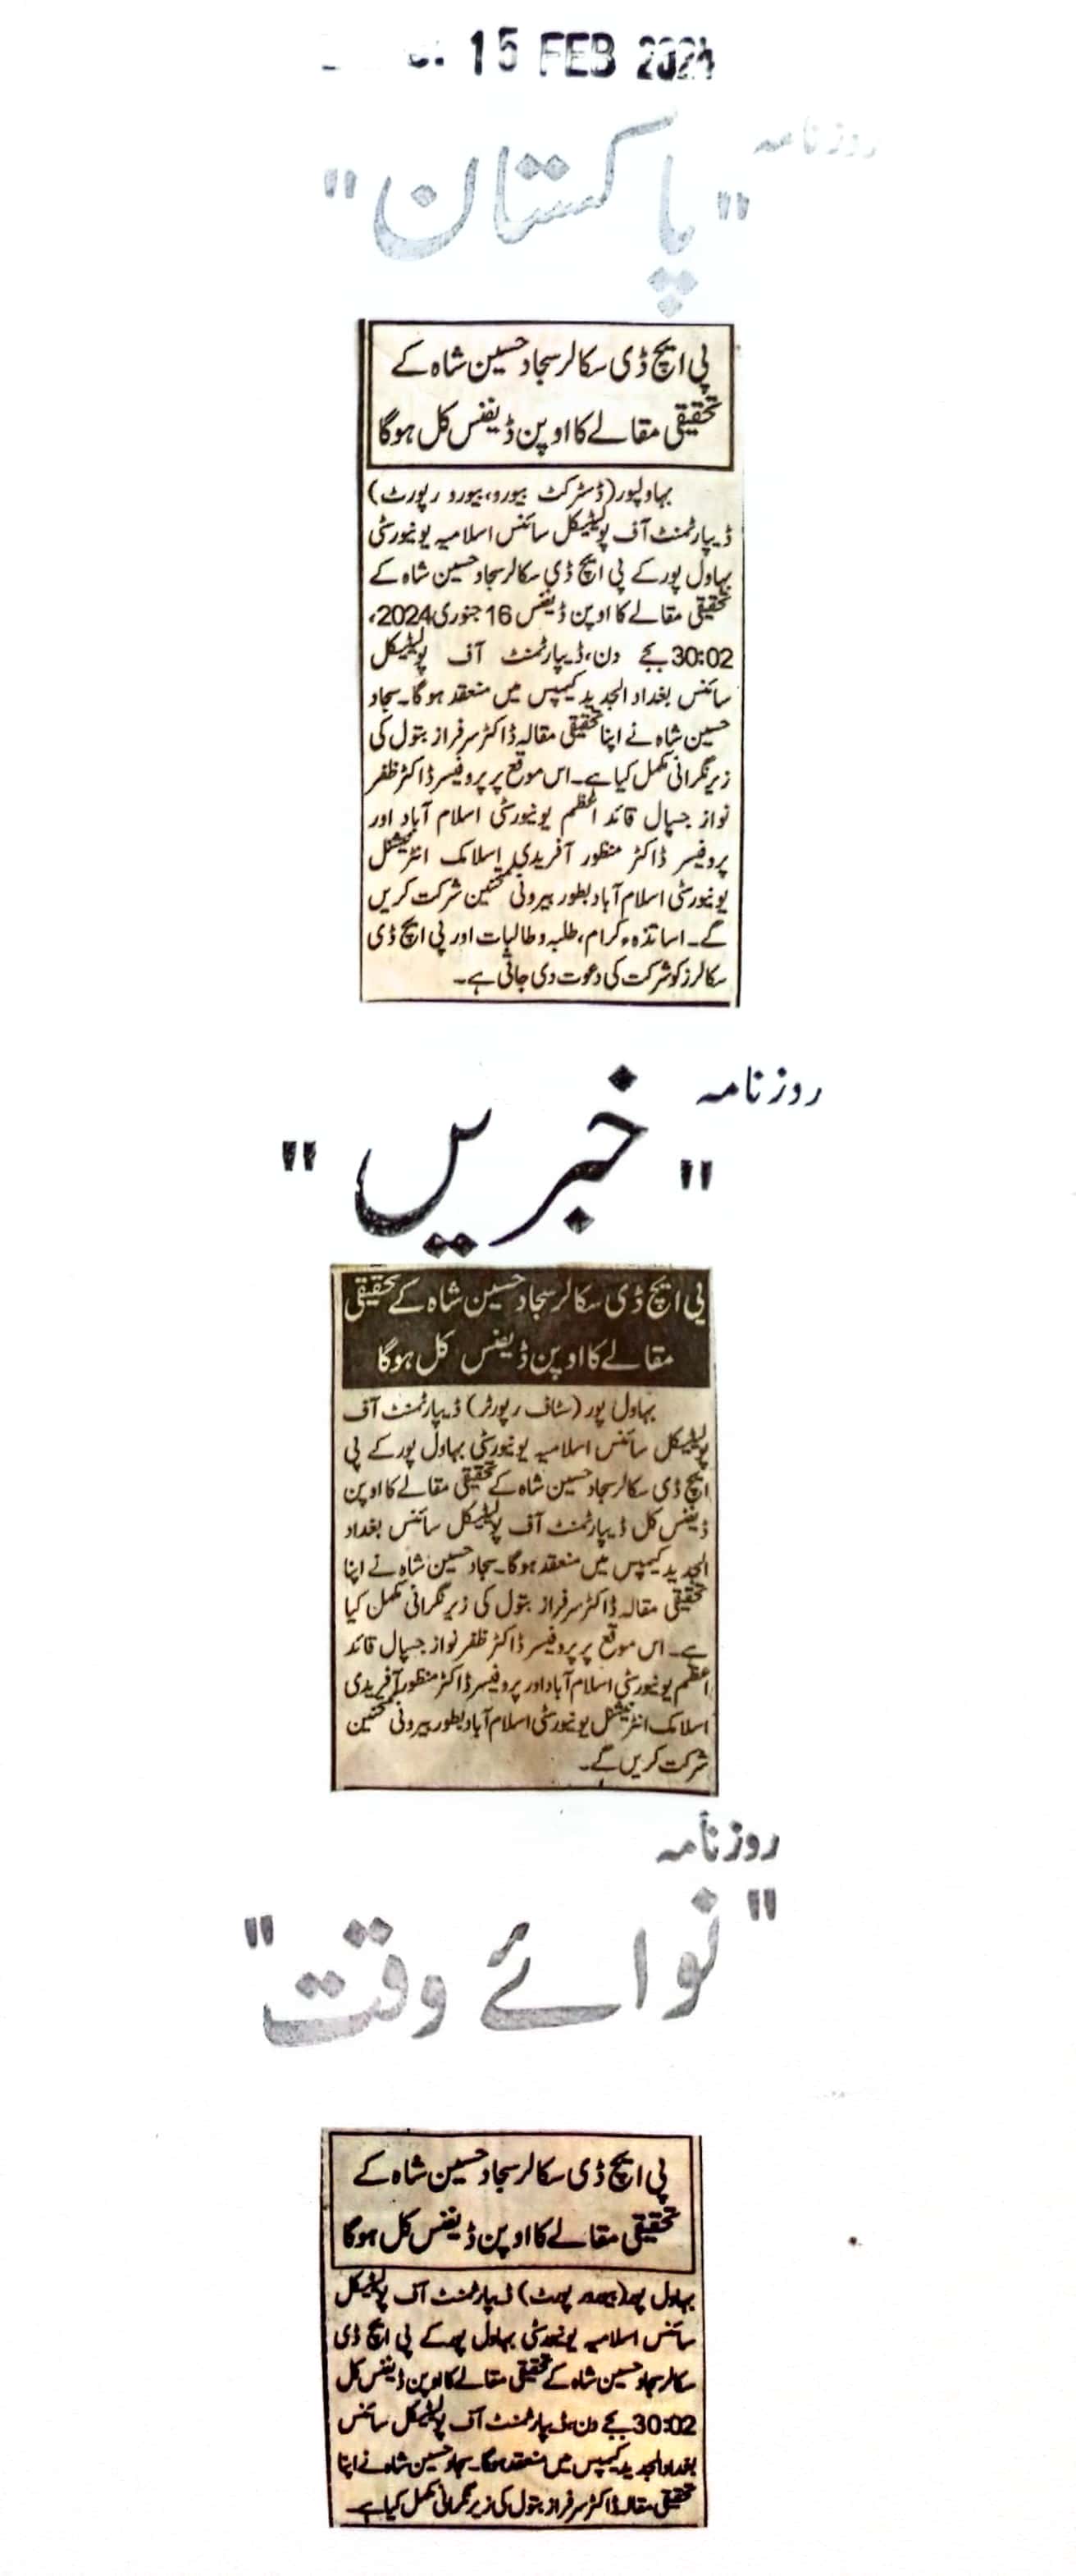 15 FEB 2024
روزنامہ
"پاکستان"
پی ایچ ڈی سکالر سجاد حسین شاہ کے
تحقیقی مقالے کا اوپن ڈیفنس کل ہوگا
بہاولپور (ڈسٹرکٹ بیورو، بیورو رپورٹ)
ڈیپارٹمنٹ آف پولیٹیکل سائنس اسلامیہ یونیورسٹی
بہاول پور کے پی ایچ ڈی سکالر سجاد حسین شاہ کے
تحقیقی مقالے کا اوپن ڈیفنس 16 جنوری 2024ء،
30:02 بجے دن، ڈیپارٹمنٹ آف پولیٹیکل
سائنس بغداد الجدید کیمپس میں منعقد ہوگا۔ سجاد
حسین شاہ نے اپنا تحقیقی مقالہ ڈاکٹر سرفراز بتول کی
زیر نگرانی مکمل کیا ہے۔ اس موقع پر پروفیسر ڈاکٹر ظفر
نواز جسپال قائد اعظم یونیورسٹی اسلام آباد اور
پروفیسر ڈاکٹر منظور آفریدی اسلامک انٹرنیشنل
یونیورسٹی اسلام آباد بطور بیرونی ممتحنین شرکت کریں
گے۔ اساتذہ کرام، طلبہ و طالبات اور پی ایچ ڈی
سکالرز کو شرکت کی دعوت دی جاتی ہے۔
روزنامہ
"خبریں"
پی ایچ ڈی سکالر سجاد حسین شاہ کے تحقیقی
مقالے کا اوپن ڈیفنس کل ہوگا
بہاول پور (سٹاف رپورٹر) ڈیپارٹمنٹ آف
پولیٹیکل سائنس اسلامیہ یونیورسٹی بہاول پور کے پی
ایچ ڈی سکالر سجاد حسین شاہ کے تحقیقی مقالے کا اوپن
ڈیفنس کل ڈیپارٹمنٹ آف پولیٹیکل سائنس بغداد
الجدید کیمپس میں منعقد ہوگا۔ سجاد حسین شاہ نے اپنا
تحقیقی مقالہ ڈاکٹر سرفراز بتول کی زیر نگرانی مکمل کیا
ہے۔ اس موقع پر پروفیسر ڈاکٹر ظفر نواز جسپال قائد
اعظم یونیورسٹی اسلام آباد اور پروفیسر ڈاکٹر منظور آفریدی
اسلامک انٹرنیشنل یونیورسٹی اسلام آباد بطور بیرونی ممتحنین
شرکت کریں گے۔
روزنامہ
"نوائے وقت"
پی ایچ ڈی سکالر سجاد حسین شاہ کے
تحقیقی مقالے کا اوپن ڈیفنس کل ہوگا
بہاول پور (بیورو رپورٹ) ڈیپارٹمنٹ آف پولیٹیکل
سائنس اسلامیہ یونیورسٹی بہاول پور کے پی ایچ ڈی
سکالر سجاد حسین شاہ کے تحقیقی مقالے کا اوپن ڈیفنس کل
30:02 بجے دن ڈیپارٹمنٹ آف پولیٹیکل سائنس
بغداد الجدید کیمپس میں منعقد ہوگا۔ سجاد حسین شاہ نے اپنا
تحقیقی مقالہ ڈاکٹر سرفراز بتول کی زیر نگرانی مکمل کیا ہے۔